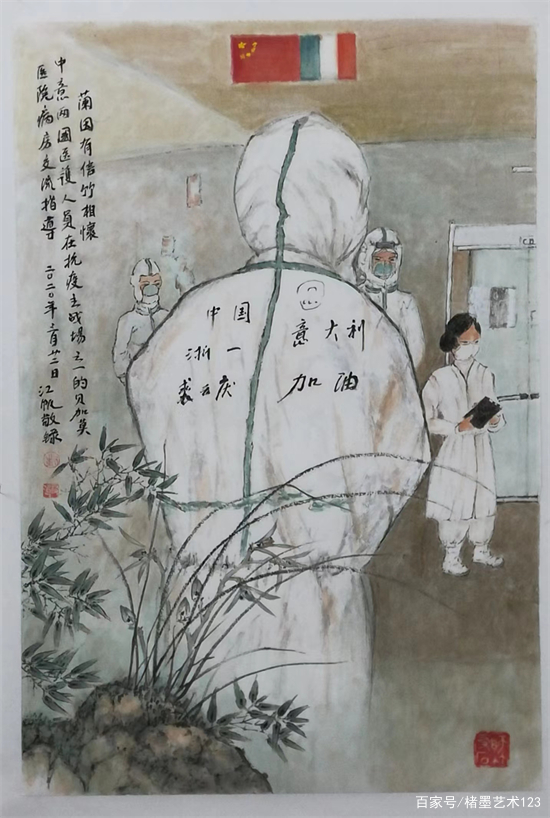 蘭有竹相懷
中意两國医護人員在抗疫主战場之一的贝加莫
医院病房交流指導 二〇二〇年月廿日 江帆敬
中国
浙一
裘云庆
意大利
加油
百家号/楮墨艺术123